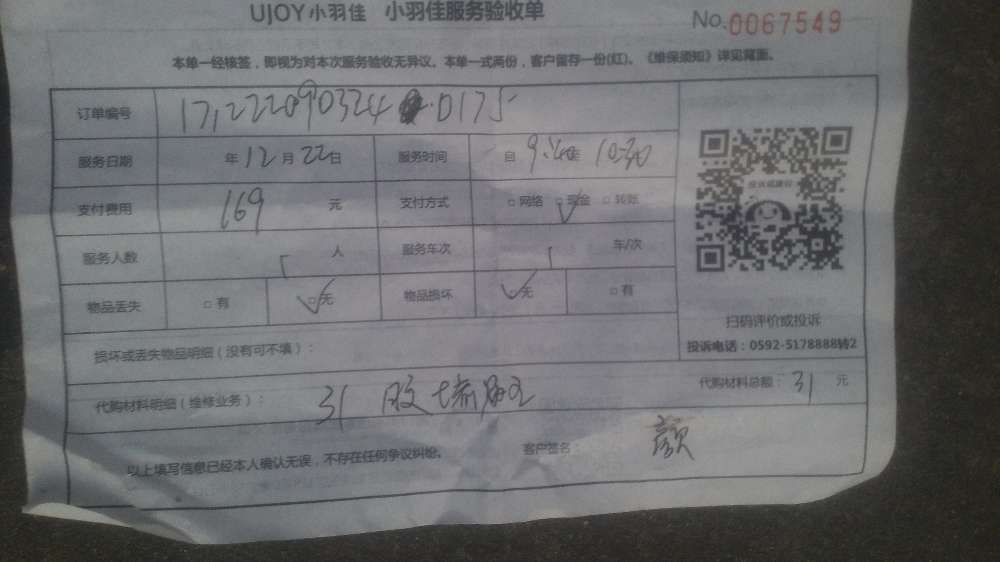 UJOY小羽佳 小羽佳服务验收单 No.0067549
本单一经核签，即视为对本次服务验收无异议。本单一式两份，客户留存一份(红)。《维保须知》详见背面。
订单编号 17,222090324 0175
服务日期 年12月22日 服务时间 自9:40至10:30
支付费用 169 元 支付方式 □网络 □现金 □转账
服务人数 1 人 服务车次 1 车/次
物品丢失 □有 □无 物品损坏 □无 □有
损坏或丢失物品明细（没有可不填）：
代购材料明细（维修业务）： 31 代购材料总额：31 元
以上填写信息已经本人确认无误，不存在任何争议纠纷。 客户签名： 颜
投诉或建议
扫码评价或投诉
投诉电话：0592-5178888转2